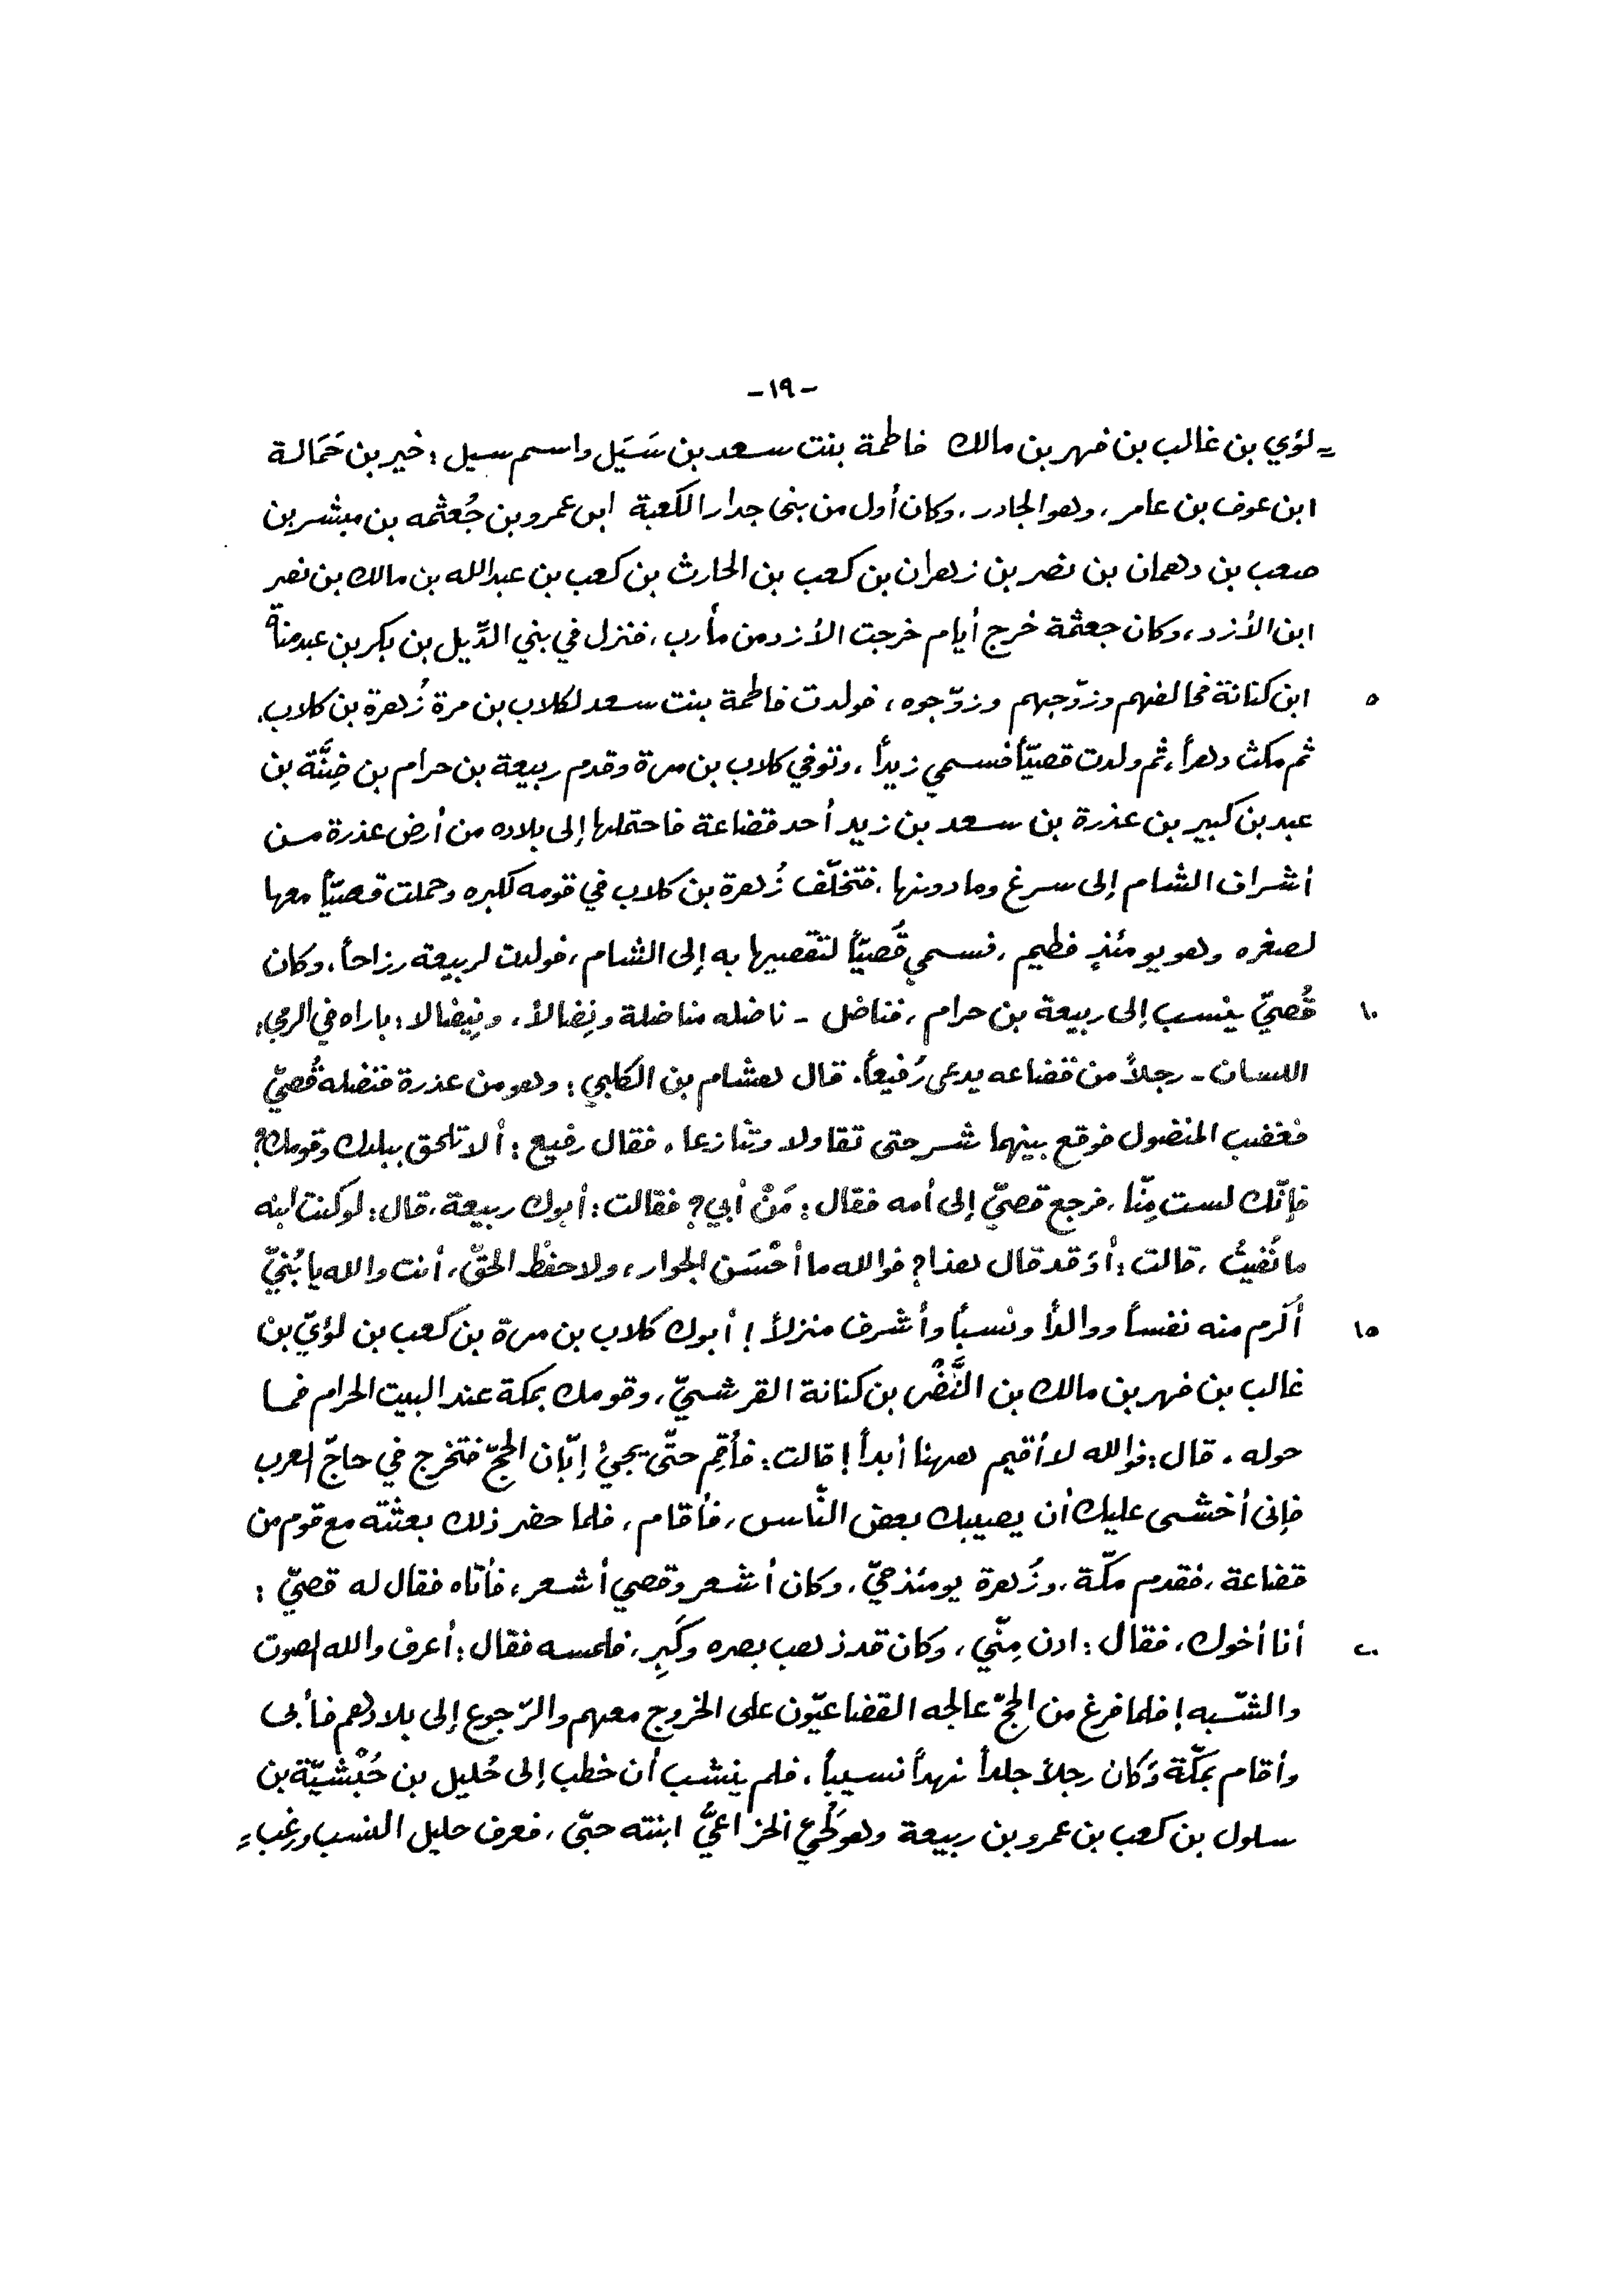 -١٩-
= لؤي بن غالب بن فهر بن مالك فاطمة بنت سعد بن سَيَل واسم سيل : خير بن حَمَالة
ابن عوف بن عامر، وهو الجادر، وكان أول من بنى جدار الكعبة ابن عمرو بن جُعثمه بن مبشر بن
صعب بن دهمان بن نصر بن زهران بن كعب بن الحارث بن كعب بن عبدالله بن مالك بن نصر
ابن الأزد، وكان جعثمة خرج أيام خرجت الأزد من مأرب، فنزل في بني الدِّيل بن بكر بن عبدمناة
٥ ابن كنانة فحالفهم وزوّجهم وزوّجوه، فولدت فاطمة بنت سعد لكلاب بن مرة زُهرة بن كلاب،
ثم مكث دهراً، ثم ولدت قصيّاً فسمي زيداً، وتوفي كلاب بن مرة وقدم ربيعة بن حرام بن ضِنَّة بن
عبد بن كبير بن عذرة بن سعد بن زيد أحد قضاعة فاحتملها إلى بلاده من أرض عذرة من
أشراف الشام إلى سرغ وما دونها، فتخلّف زُهرة بن كلاب في قومه لكبره وحملت قصيّاً معها
لصغره وهو يومئذٍ فطيم، فسمي قُصيّاً لتقصيها به إلى الشام، فولدت لربيعة رزاحاً، وكان
١٠ قُصيّ ينسب إلى ربيعة بن حرام، فناضل - ناضله مناضلة ونِضالاً، ونِيضالا: باراه في الرمي،
اللسان - رجلاً من قضاعه يدعى رُفيعاً. قال هشام بن الكلبي : وهو من عذرة فنضله قُصيّ
فغضب المنضول فوقع بينهما شر حتى تقاولا وتنازعا، فقال رفيع : ألا تلحق ببلدك وقومك؟
فإنّك لست مِنّا، فرجع قصيّ إلى أمه فقال : مَنْ أبي؟ فقالت : أبوك ربيعة، قال : لو كنت ابنه
ما نُفيتُ، قالت : أوَ قد قال هذا؟ فوالله ما أحْسَن الجوار، ولا حفظ الحقّ، أنت والله يا بُنيّ
١٥ أكرم منه نفساً ووالداً ونسباً وأشرف منزلاً ! أبوك كلاب بن مرة بن كعب بن لؤيّ بن
غالب بن فهر بن مالك بن النَّضْر بن كنانة القرشيّ، وقومك بمكة عند البيت الحرام فما
حوله . قال : فوالله لا أقيم ههنا أبداً ! قالت : فأقِم حتّى يجيءُ إبّان الحجّ فتخرج في حاجّ العرب
فإنى أخشى عليك أن يصيبك بعض النّاس، فأقام، فلما حضر ذلك بعثته مع قوم من
قضاعة، فقدم مكّة، وزُهرة يومئذ حيّ، وكان أشعر وقصي أشعر، فأتاه فقال له قصيّ :
٢٠ أنا أخوك، فقال : ادن مِنّي، وكان قد ذهب بصره وكَبِر، فلمسه فقال : أعرف والله الصوت
والشّبه ! فلما فرغ من الحجّ عالجه القضاعيّون على الخروج معهم والرّجوع إلى بلادهم فأبى
وأقام بمكّة وكان رجلاً جلداً نهداً نسيباً، فلم ينشب أن خطب إلى حُليل بن حُبْشيّة بن
سلول بن كعب بن عمرو بن ربيعة وهو لُحَي الخزاعيُّ ابنته حبّى، فعرف حليل النسب ورغب =